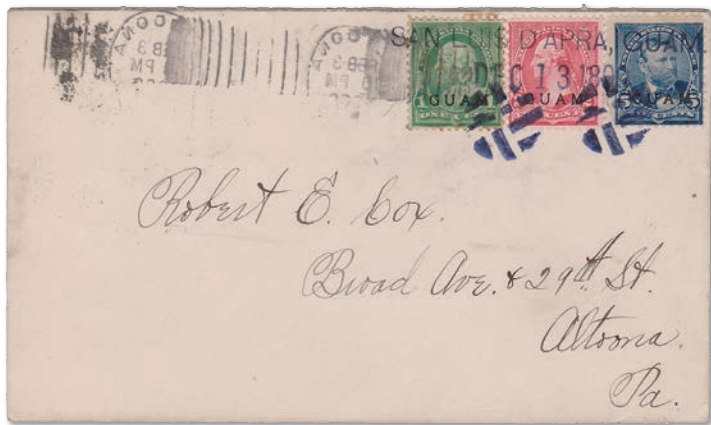 SAN LUIS D'APRA, GUAM.
DEC 13 189
GUAM GUAM GUAM
ONE CENT
Robert E. Cox.
Broad Ave. & 29th St.
Altoona.
Pa.